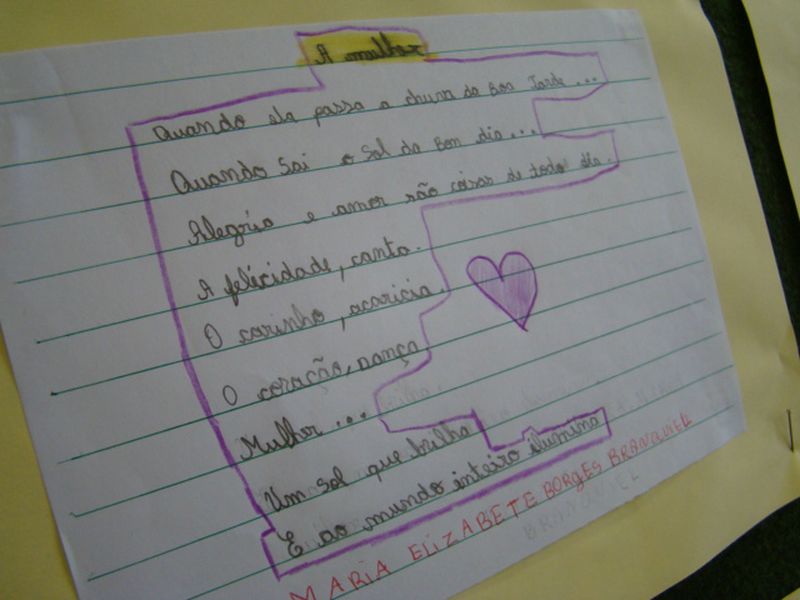 A mulher
Quando ela passa a chuva da Boa Tarde...
Quando Sai o Sol da Bom dia...
Alegria e amor são coisas de todo dia.
A felicidade, canta.
O carinho, acaricia.
O coração, dança
Mulher...
Um Sol que brilha
E ao mundo inteiro ilumina
MARIA ELIZABETE BORGES BRANQUIEL